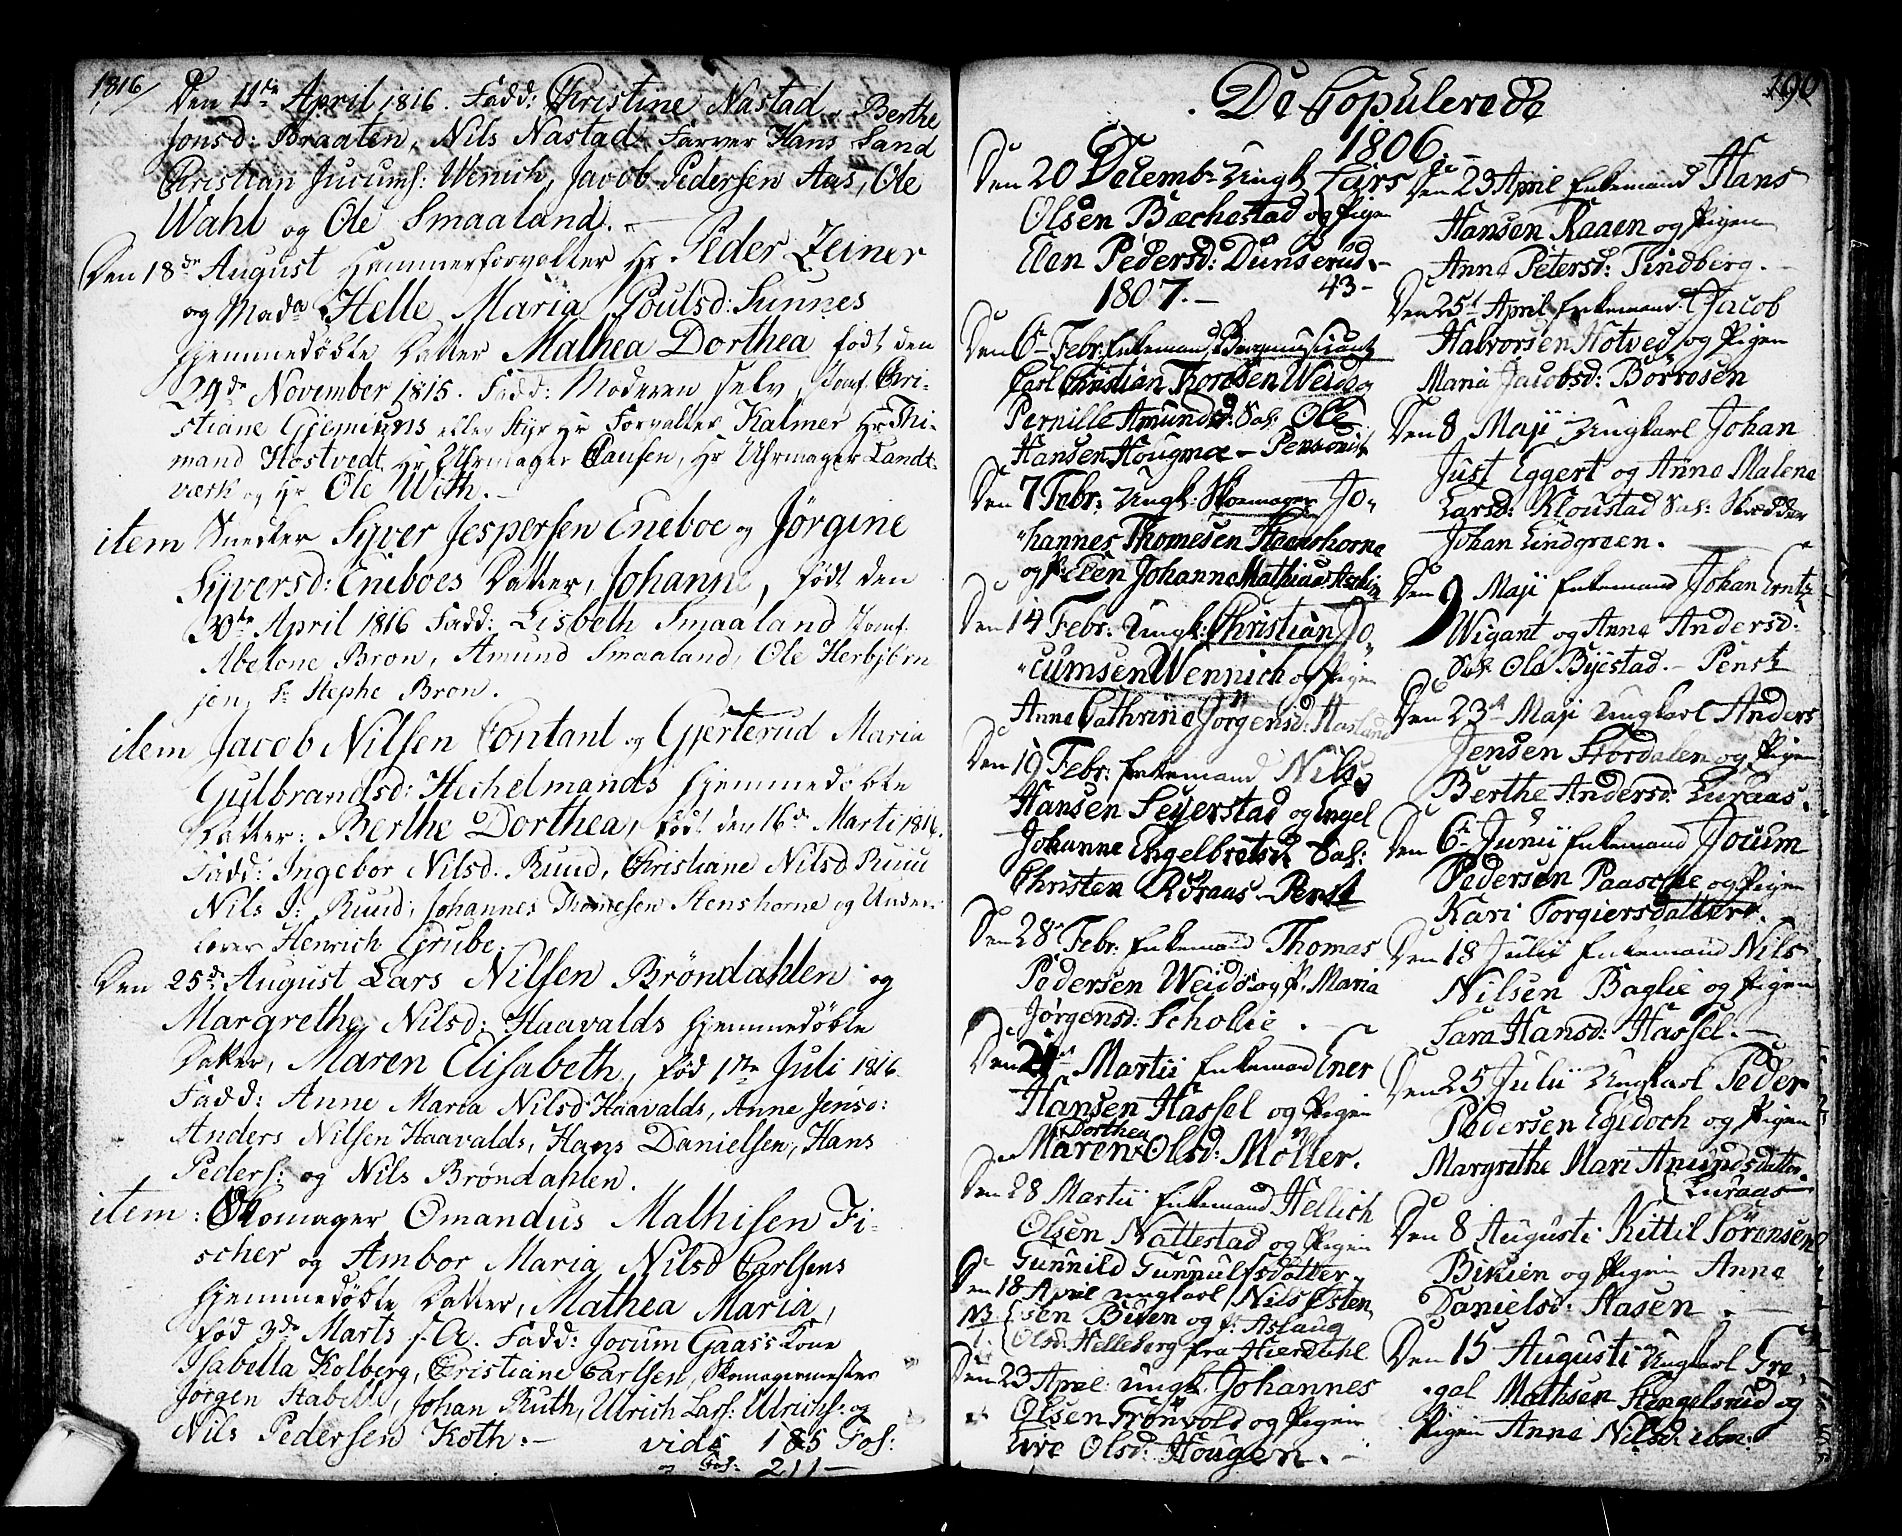 1816
Den 11te April 1816. Fadd: Christine Nastad, Berthe
Jonsd: Braaten, Nils Nastad, Farver Hans Sand
Christian Jucums: Wenich, Jacob Pedersen Aas, Ole
Wahl og Ole Smaaland.
Den 18de August Hammerforvalter Hr Peder Zeiner
og Mada Helle Maria Poulsd: Sunnes
hjemmedøbte Datter Mathea Dorthea født den
29de November 1815. Fadd: Moderen selv, Jomf. Chri-
stiane Hr Forvalter Kalmer Hr Thi-
mand Hostvedt Hr Uhrmager Clausen, Hr Uhrmager Landt-
værk og Hr Ole With.
item Snedker Syver Jespersen Eneboe og Jørgine
Syversd: Eneboes Datter, Johanne, født den
30te April 1816 Fadd: Lisbeth Smaaland Jomf.
Abelone Bron, Amund Smaaland, Ole Herbjörn
sen, Stephe Bron.
item Jacob Nilsen Contant og Gjerterud Maria
Gulbrandsd: Hechelmands hjemmedøbte
Datter: Berthe Dorthea, født den 16de Marti 1816.
Fadd: Ingebor Nilsd. Ruud, Christiane Nilsd Ruud
Nils J: Ruud, Johannes Thomesen Stenshorne og Under-
Henrich Grube.
Den 25de August Lars Nilsen Brøndahlen og
Margrethe Nilsd: Haavalds hjemmedøbte
Datter, Maren Elisabeth, fød 1te Juli 1816
Fadd: Anne Maria Nilsd Haavalds, Anne Jensd:
Anders Nilsen Haavalds, Hans Danielsen, Hans
Peders: og Nils Brøndahlen.
item: Skomager Omandus Mathisen Fi-
scher og Ambor Maria Nilsd Carlsens
hjemmedøbte Datter, Mathea Maria,
fød 3de Marts s. A. Fadd: Jocum Gaas's Kone
Isabella Kolberg, Christiane Carlsen, Skomagermester
Jørgen Stabell, Johan Ruth, Ulrich Lars: Ulrichs: og
Nils Pedersen Koth.
vide 185 Fol:
og Fol: 211
190
De Copulerede
1806.
Den 20 Decemb: Ungk Lars
Olsen Bæchestad og Pigen
Elen Pedersd: Dunserud.
1807. 43
Den 6te Febr: Enkemand Bergmusicant
Carl Christian Thordsen Weid og
Pernille Amundsd. Sal: Ole
Hansen Hougmoe - Pensionist
Den 7 Febr: Ungk: Skomager Jo-
hannes Thomesen Steenshorne
og P. Elen Johanne Mathiasd
Den 14 Febr: Ungk: Christian Jo-
cumsen Wennich og Pigen
Anne Cathrine Jörgensd: Hasland
Den 19 Febr: Enkemand Nils
Hansen Sejerstad og Engel
Johanne Engelbretsd Sal:
Christen Röraas Penst
Den 28 Febr: Enkemand Thomas
Pedersen Weid og P. Maria
Jørgensd: Scholie.
Den 21 Martii Enkemand Ener
Hansen Hassel og Pigen
Maren Dorthea Olsd: Möller.
Den 28 Martii Enkemand Hellich
Olsen Nattestad og Pigen
Gunnild Gunnulfsdatter
Den 18 April Ungkarl Nils Østen-
sen Buen og P. Aslaug
Olsd: Helleberg fra Hierdahl
Den 23 April: Ungk: Johannes
Olsen Grönvold og Pigen
Live Olsd: Hougen.
Den 23 April Enkemand Hans
Hansen Raaen og Pigen
Anne Petersd: Tindberg.
Den 25 April Enkemand Jacob
Halvorsen Hotved og Pigen
Maria Jacobsd: Börrosen
Den 8 Maji Ungkarl Johan
Just Eggert og Anne Malene
Larsd: Kloustad Sal: Skrædder
Johan Lindgreen.
Den 9 Maji Enkemand Johan Erntz
Wigant og Anne Andersd:
Sal: Ole Byestad. - Penst
Den 23 Maji Ungkarl Anders
Jensen Stordalen og Pigen
Berthe Andersd: Luraas.
Den 6te Junii Enkemand Jocum
Pedersen Paasche og Pigen
Kari Torgiersdatter.
Den 18 Julii Enkemand Nils
Nilsen Baglie og Pigen
Sara Hansd: Hassel.
Den 25 Julii Ungkarl Peder
Pedersen Egedoch og Pigen
Margrethe Mari Amundsdatter
Luraas
Den 8 Augusti Kittil Sörensen
Bikien og Pigen Anne
Danielsd: Aasen.
Den 15 Augusti Ungkarl Gre-
gal Mathsen Stengelsrud og
Pigen Anne Nilsd